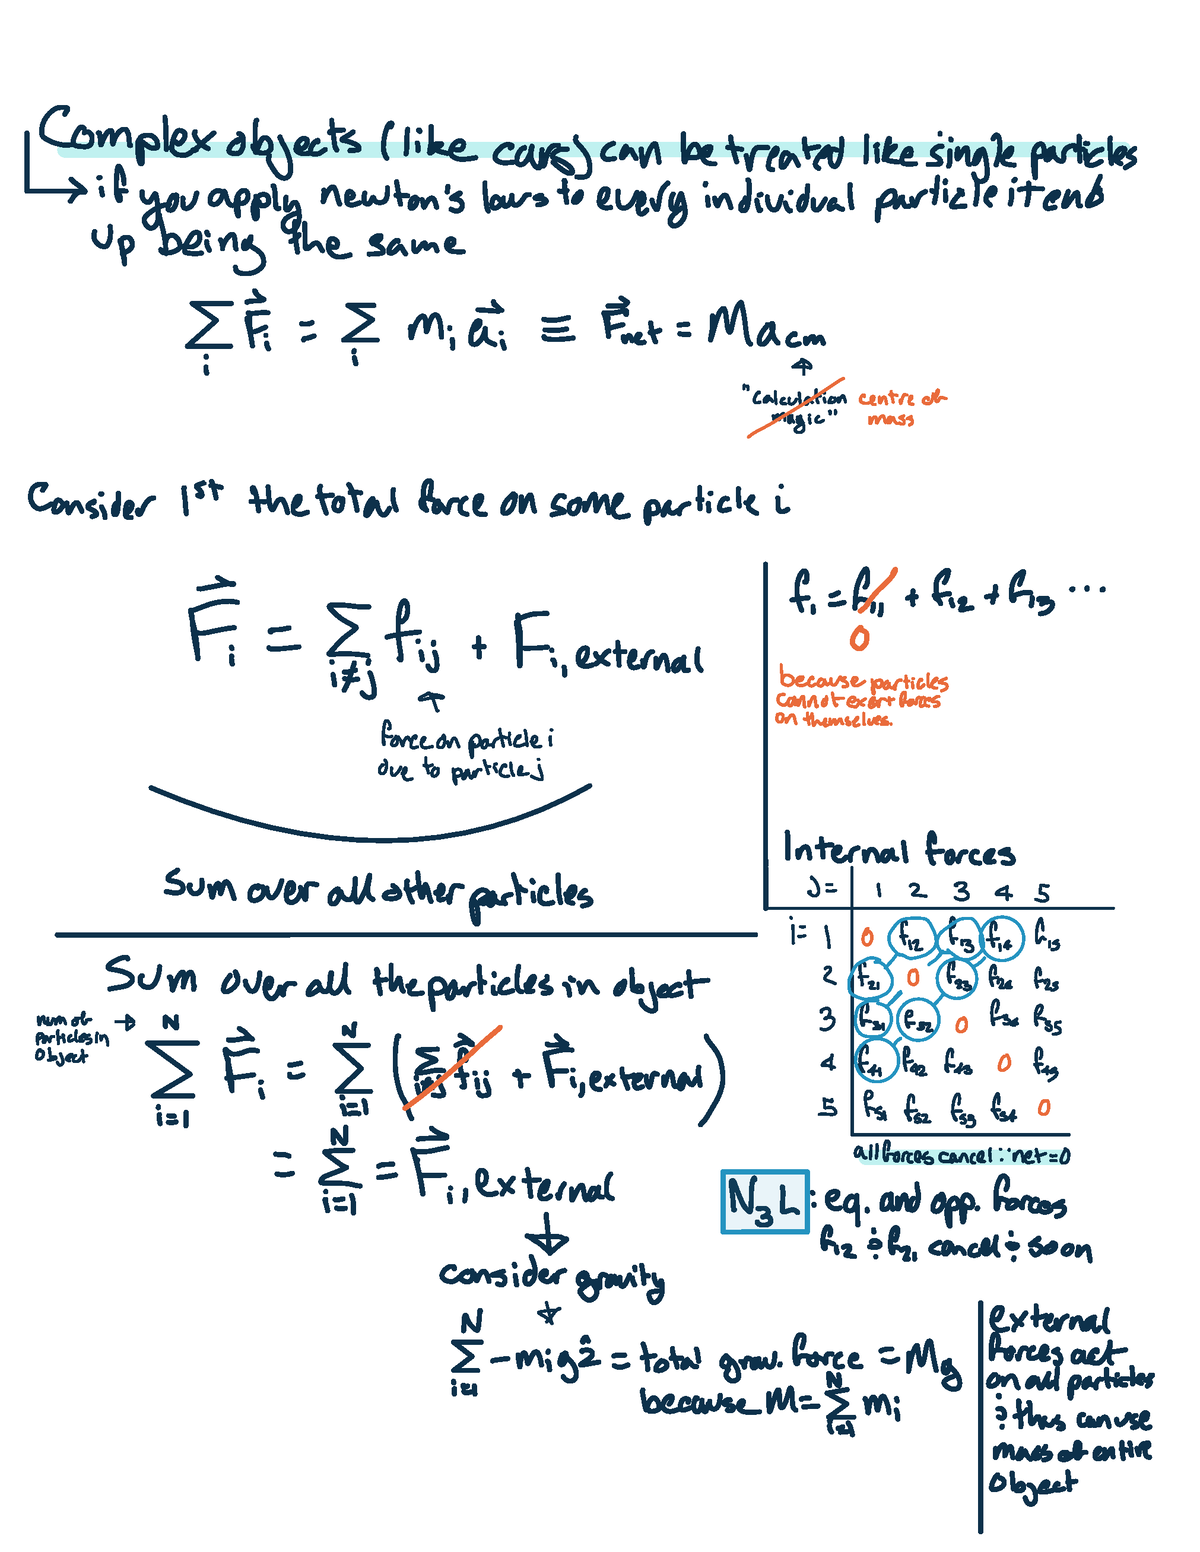 Complex objects (like cars) can be treated like single particles
if you apply newton's laws to every individual particle it ends
up being the same
∑_i F⃗_i = ∑_i m_i a⃗_i ≡ F⃗_net = Ma_cm
"Calculation magic" centre of mass
Consider 1st the total force on some particle i
F⃗_i = ∑_{i≠j} f_ij + F_i,external
force on particle i
due to particle j
Sum over all other particles
f_1 = f_11 + f_12 + f_13 ...
0
because particles
cannot exert forces
on themselves.
Internal forces
J= 1 2 3 4 5
i= 1 0 f_12 f_13 f_14 f_15
2 f_21 0 f_23 f_24 f_25
3 f_31 f_32 0 f_34 f_35
4 f_41 f_42 f_43 0 f_45
5 f_51 f_52 f_53 f_54 0
all forces cancel ∴ net=0
N_3L : eq. and opp. forces
f_12 & f_21 cancel & so on
Sum over all the particles in object
num of
particles in
object
∑_{i=1}^N F⃗_i = ∑_{i=1}^N (∑_{i≠j} f⃗_ij + F⃗_i,external)
= ∑_{i=1}^N = F⃗_i,external
consider gravity
∑_{i=1}^N -m_i g ẑ = total grav. force = Mg
because M = ∑_{i=1}^N m_i
external
forces act
on all particles
& thus can use
mass of entire
object